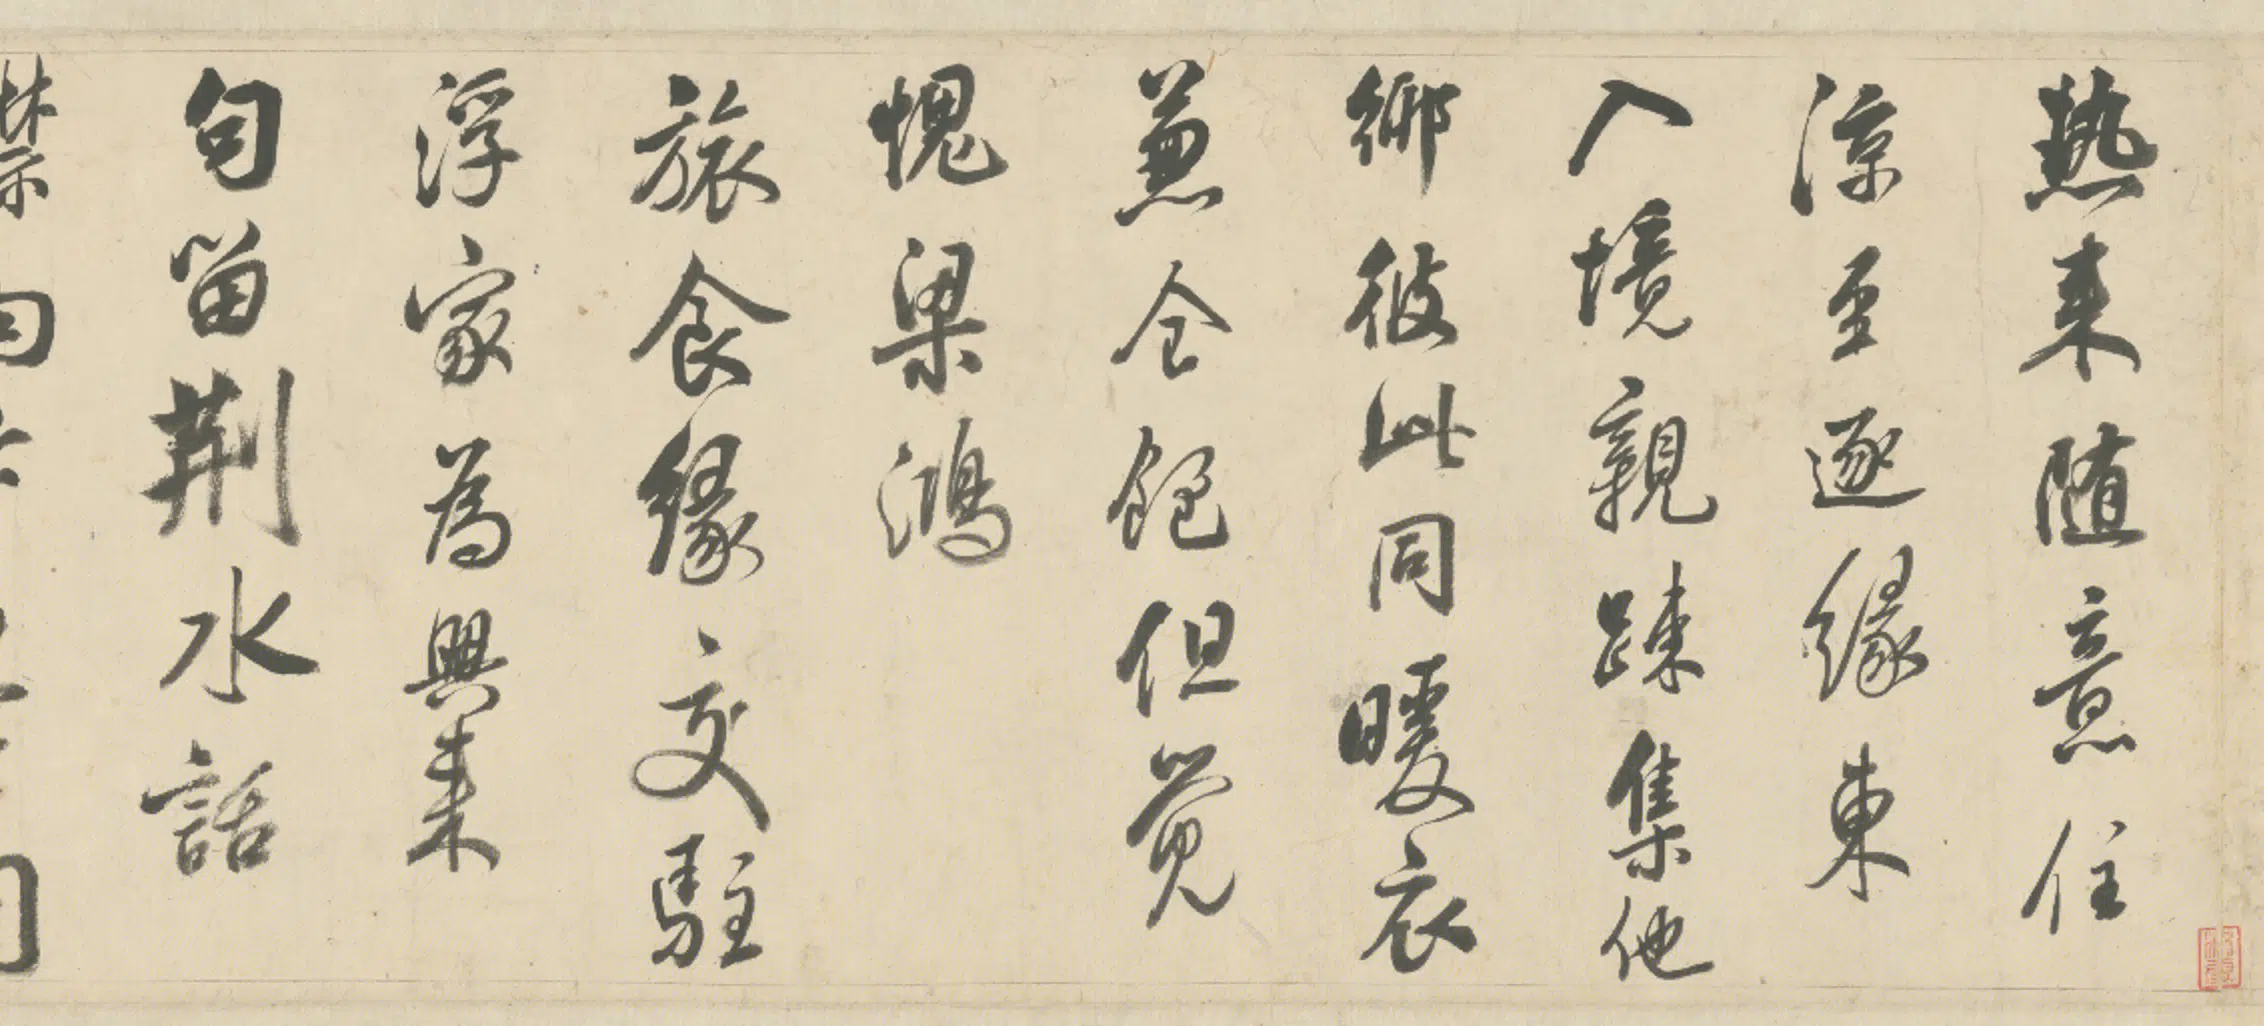 熱来随意住
涼至逐緣東
入境親踈集他
鄉彼此同暖衣
兼食飽但覺
愧梁鴻
旅食緣交駐
浮家為興来
句留荆水話